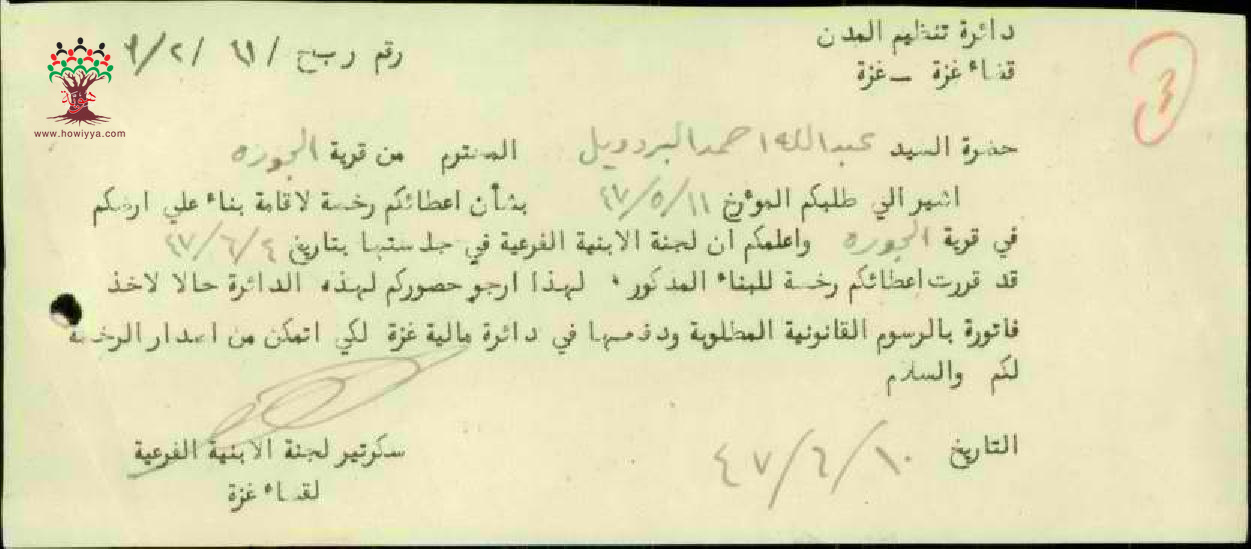 دائرة تنظيم المدن
قضاء غزة – غزة
رقم ر ب ج / ٦١ / ٢ / ٩
www.howiyya.com
حضرة السيد عبدالله احمد البردويل المحترم من قرية الجوره
اشير الي طلبكم المؤرخ ١١/٥/٤٧ بشأن اعطائكم رخصة لاقامة بناء علي ارضكم
في قرية الجوره واعلمكم ان لجنة الابنية الفرعية في جلستها بتاريخ ٤/٦/٤٧
قد قررت اعطائكم رخصة للبناء المذكور ٠ لهذا ارجو حضوركم لهذه الدائرة حالا لاخذ
فاتورة بالرسوم القانونية المطلوبة ودفعها في دائرة مالية غزة لكي اتمكن من اصدار الرخصة
لكم والسلام
التاريخ ١٠/٦/٤٧
سكرتير لجنة الابنية الفرعية
لقضاء غزة